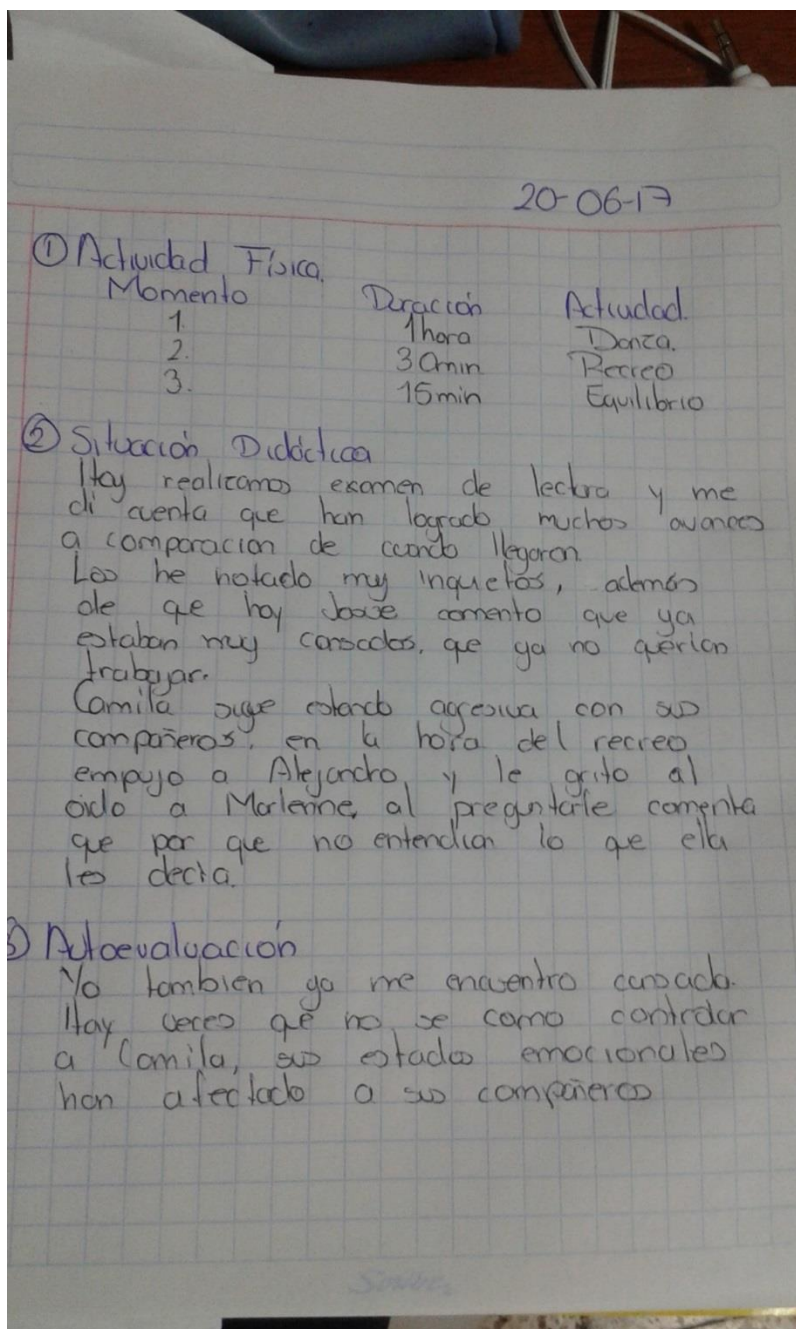 20-06-17
① Actividad Física.
Momento Duración Actividad.
1. 1hora Danza.
2. 30min Recreo
3. 15min Equilibrio
② Situación Didáctica
Hoy realizamos examen de lectura y me
di cuenta que han logrado muchos avances
a comparacion de cuando llegaron.
Los he notado muy inquietos, además
de que hoy comento que ya
estaban muy cansados, que ya no querian
trabajar.
Camila sigue estando agresiva con sus
compañeros, en la hora del recreo
empujo a Alejandro, y le grito al
oído a Marlenne, al preguntarle comenta
que por que no entendian lo que ella
les decia.
3) Autoevaluación
Yo tambien ya me encuentro cansada.
Hay veces que no se como controlar
a Camila, sus estados emocionales
han afectado a sus compañeros